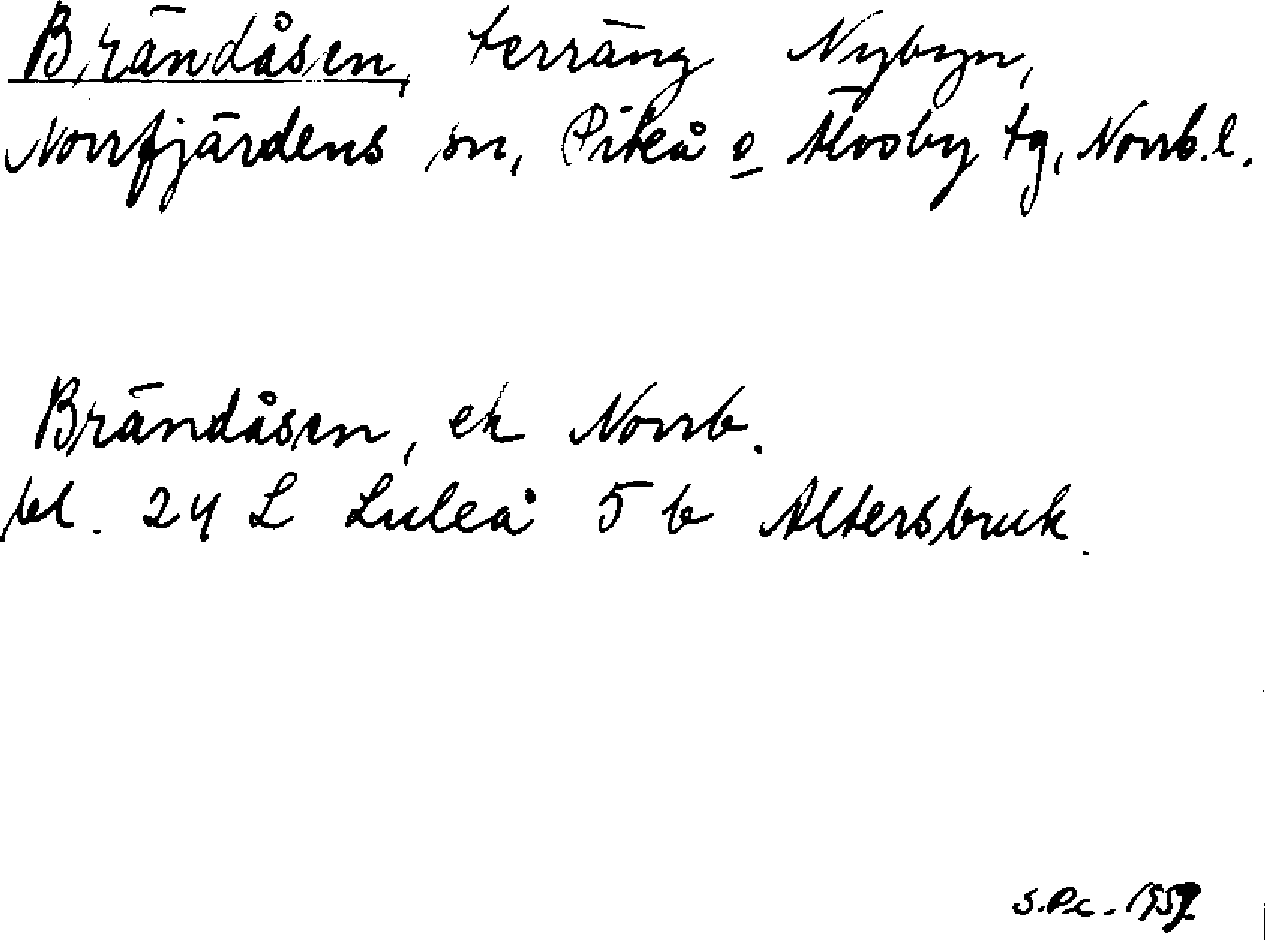 Brändåsen, terräng Nybyn,
Norrfjärdens sn, Piteå o Älvsby tg, Norrb.l.
Brändåsen, ek Norrb.
bl. 24 L Luleå 5 b Altersbruk.